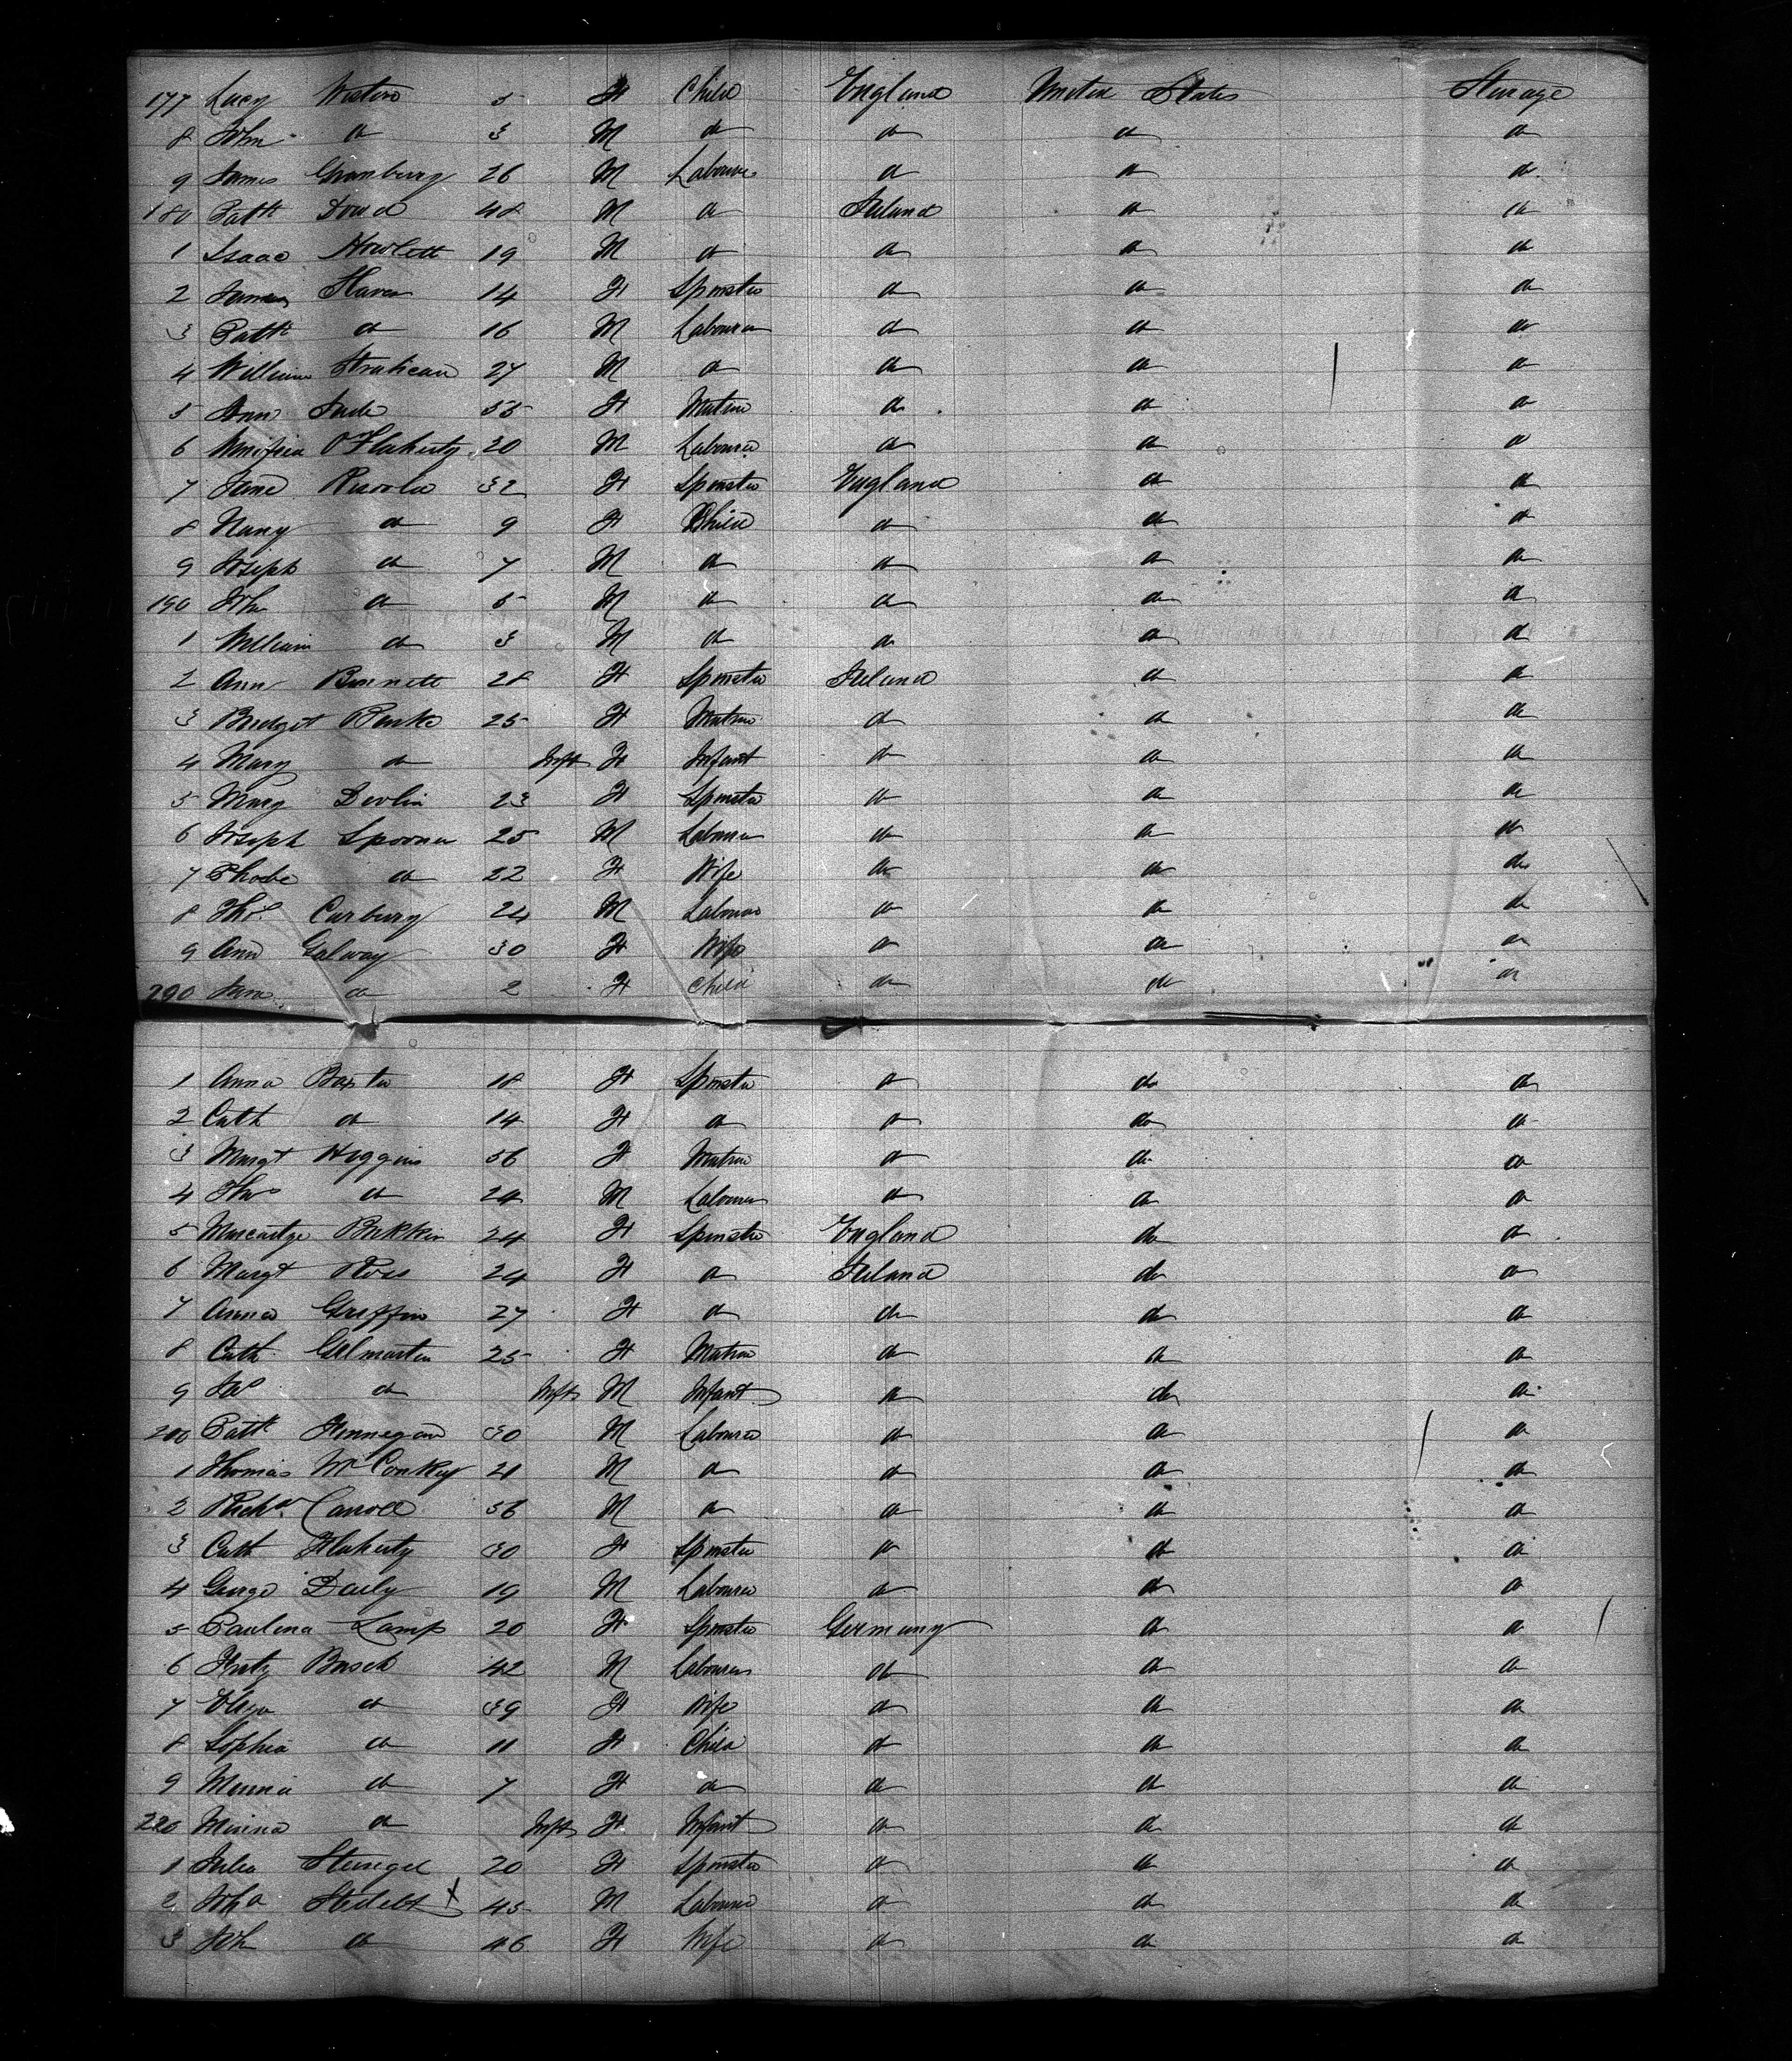 177 Lucy Weston 5 F Child England United States Steerage
8 John do 3 M do do do do
9 James Granbury 26 M Labourer do do do
180 Patk Dowd 48 M do Ireland do do
1 Isaac Howlett 19 M do do do do
2 14 F Spinster do do do
3 Patk do 16 M Labourer do do do
4 William Strahean 27 M do do do do
5 Ann 55 F Matron do do do
6 O'Flaherty 20 M Labourer do do do
7 Jane 32 F Spinster England do do
8 Mary do 9 F Child do do do
9 Joseph do 7 M do do do do
190 John do 5 M do do do do
1 William do 3 M do do do do
2 Ann Bennett 28 F Spinster Ireland do do
3 Bridget Burke 25 F Matron do do do
4 Mary do Inft F Infant do do do
5 Mary Devlin 23 F Spinster do do do
6 Joseph Spooner 25 M Labourer do do do
7 Phoebe do 22 F Wife do do do
8 Thos Carbury 24 M Labourer do do do
9 Ann Galway 30 F Wife do do do
290 Jane do 2 F Child do do do
1 Anna Baxter 18 F Spinster do do do
2 Cath do 14 F do do do do
3 Margt Higgins 56 F Matron do do do
4 Thos do 24 M Labourer do do do
5 24 F Spinster England do do
6 Margt Ross 24 F do Ireland do do
7 Anna Griffin 27 F do do do do
8 Cath Gilmartin 25 F Matron do do do
9 Jno do Inft M Infant do do do
200 Patk Finnegan 30 M Labourer do do do
1 Thomas McConkey 21 M do do do do
2 Richd. Carroll 36 M do do do do
3 Cath Flaherty 30 F Spinster do do do
4 George Daily 19 M Labourer do do do
5 Paulina Lamp 20 F Spinster Germany do do
6 Fritz Busch 42 M Labourer do do do
7 do 39 F Wife do do do
8 Sophia do 11 F Child do do do
9 Minnia do 7 F do do do do
220 Minna do Inft F Infant do do do
1 Julia Stengel 20 F Spinster do do do
2 Joha X 45 M Labourer do do do
3 Joh do 46 F Wife do do do